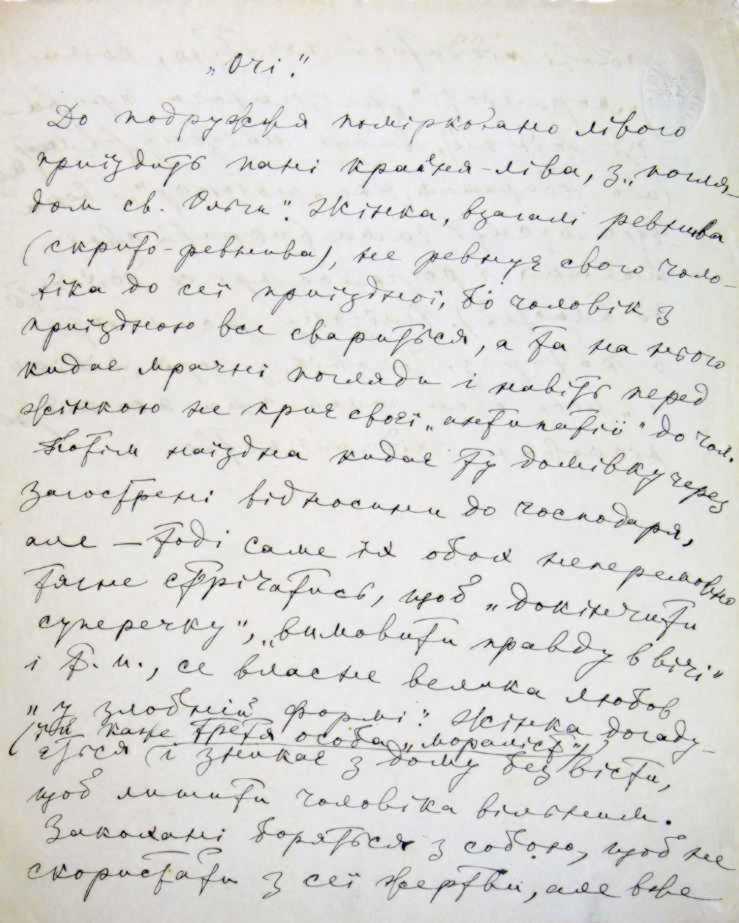 „Очі".
До подружжя помірковано лівого
приїздить пані крайня-ліва, з „погля-
дом св. Ольги". Жінка, взагалі ревнива
(скрито-ревнива), не ревнує свого чоло-
віка до сеї приїздної, бо чоловік з
приїздною все свариться, а та на нього
кидає мрачні погляди і навіть перед
жінкою не криє своєї „антипатії" до чол.
Потім наїздна кидає ту домівку через
загострені відносини до господаря,
але — тоді саме їх обох непереможно
тягне стрічатись, щоб „докінчити
суперечку", „вимовити правду в вічі"
і т. и., се власне велика любов
„у злобній формі". Жінка догаду-
(їй каже третя особа „мораліст"),
ється і зникає з дому без вісти,
щоб лишити чоловіка вільним.
Закохані боряться з собою, щоб не
скористати з сеї жертви, але вже